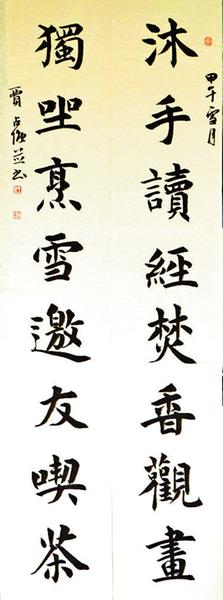 甲午雪月
沐手讀經焚香觀畫
獨坐烹雪邀友喫茶